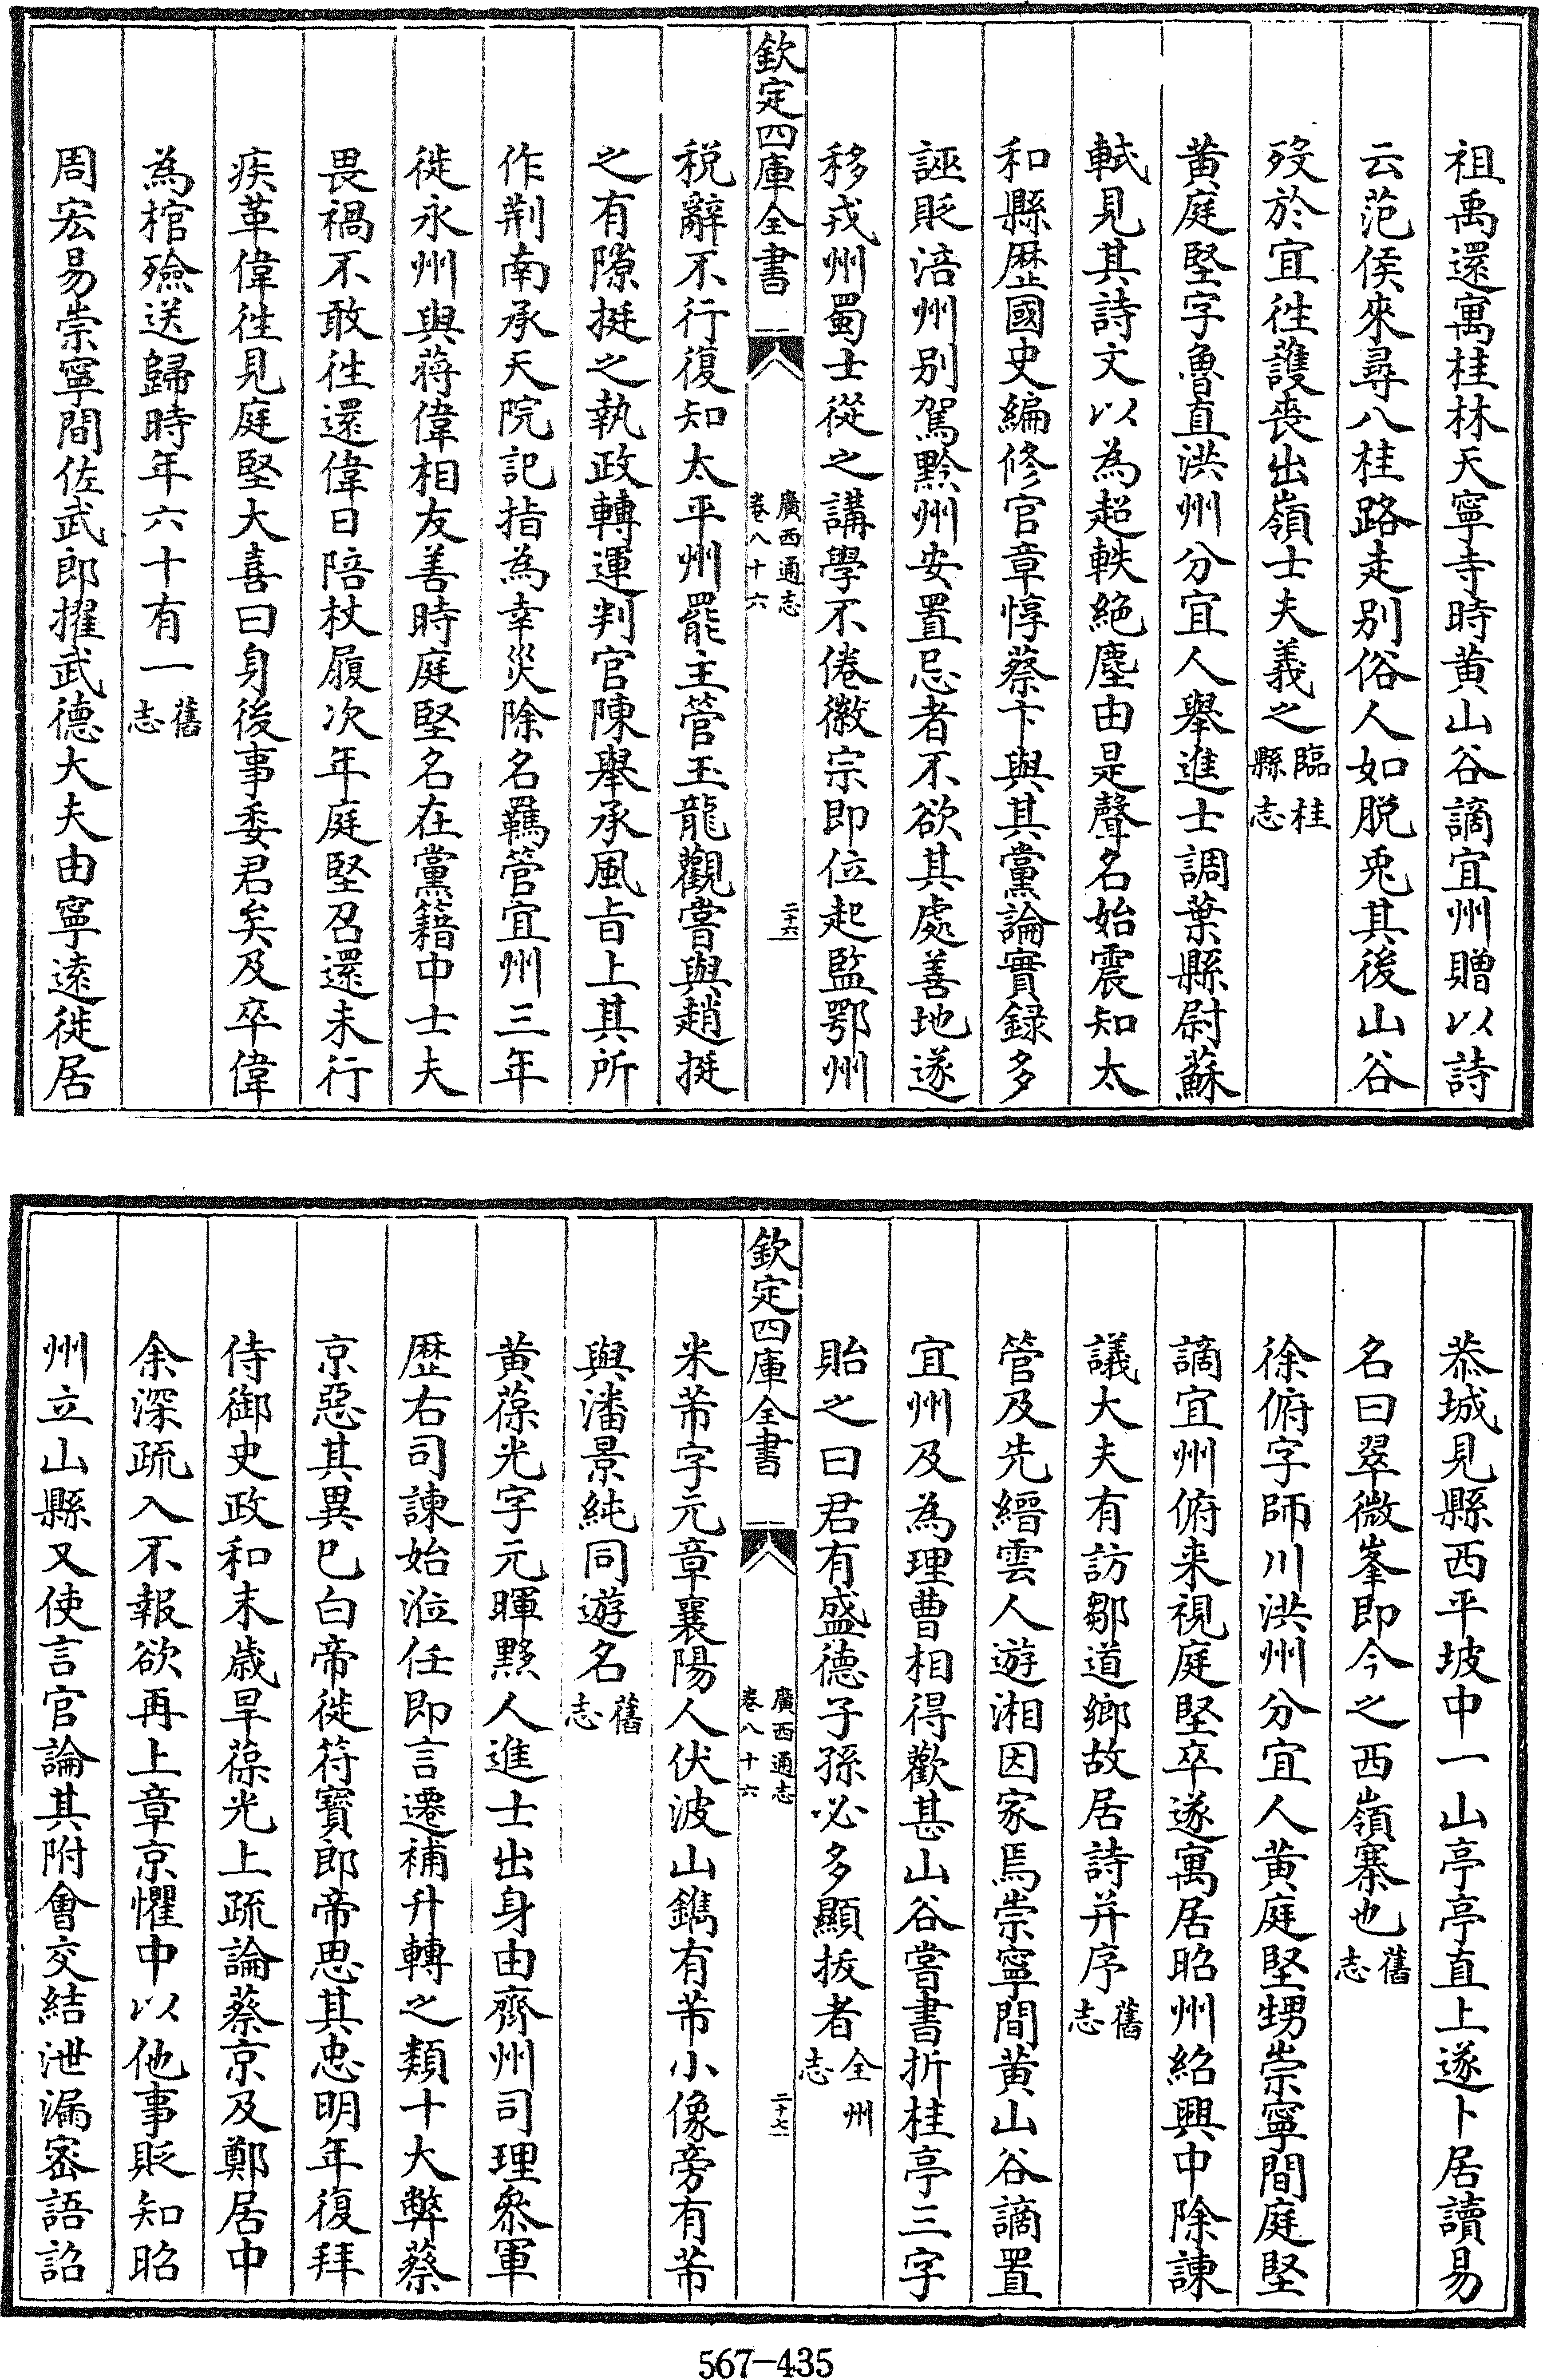 祖禹還寓桂林天寧寺時黄山谷謫宜州贈以詩
云范侯來尋八桂路走别俗人如脱兎其後山谷
歿於宜徃䕶喪出嶺士夫義之臨桂縣志
黄庭堅字魯直洪州分宜人舉進士調葉縣尉蘇
軾見其詩文以為超軼絶塵由是聲名始震知太
和縣歴國史編修官章惇蔡卞與其黨論實録多
誣貶涪州别駕黔州安置忌者不欲其處善地遂
移戎州蜀士從之講學不倦徽宗即位起監鄂州
欽定四庫全書
廣西通志
卷八十六
二十六
税辭不行復知太平州罷主管玉龍觀嘗與趙挺
之有隙挺之執政轉運判官陳舉承風旨上其所
作荆南承天院記指為幸災除名羈管宜州三年
徙永州與蔣偉相友善時庭堅名在黨籍中士夫
畏禍不敢徃還偉日陪杖履次年庭堅召還未行
疾革偉徃見庭堅大喜曰身後事委君矣及卒偉
為棺殮送歸時年六十有一舊志
周宏易崇寧間佐武郎擢武德大夫由寧逺徙居
恭城見縣西平坡中一山亭亭直上遂卜居讀易
名曰翠微峯即今之西嶺寨也舊志
徐俯字師川洪州分宜人黄庭堅甥崇寧間庭堅
謫宜州俯来視庭堅卒遂寓居昭州紹興中除諫
議大夫有訪鄒道鄉故居詩并序舊志
管及先縉雲人遊湘因家焉崇寧間黄山谷謫置
宜州及為理曹相得歡甚山谷嘗書折桂亭三字
貽之曰君有盛德子孫必多顯拔者全州志
欽定四庫全書
廣西通志
卷八十六
二十七
米芾字元章襄陽人伏波山鐫有芾小像旁有芾
與潘景純同遊名舊志
黄葆光字元暉黟人進士出身由齊州司理叅軍
歴右司諫始涖任即言遷補升轉之類十大弊蔡
京惡其異已白帝徙符寶郎帝思其忠明年復拜
侍御史政和末歳旱葆光上疏論蔡京及鄭居中
余深疏入不報欲再上章京懼中以他事貶知昭
州立山縣又使言官論其附會交結泄漏宻語詔
567-435